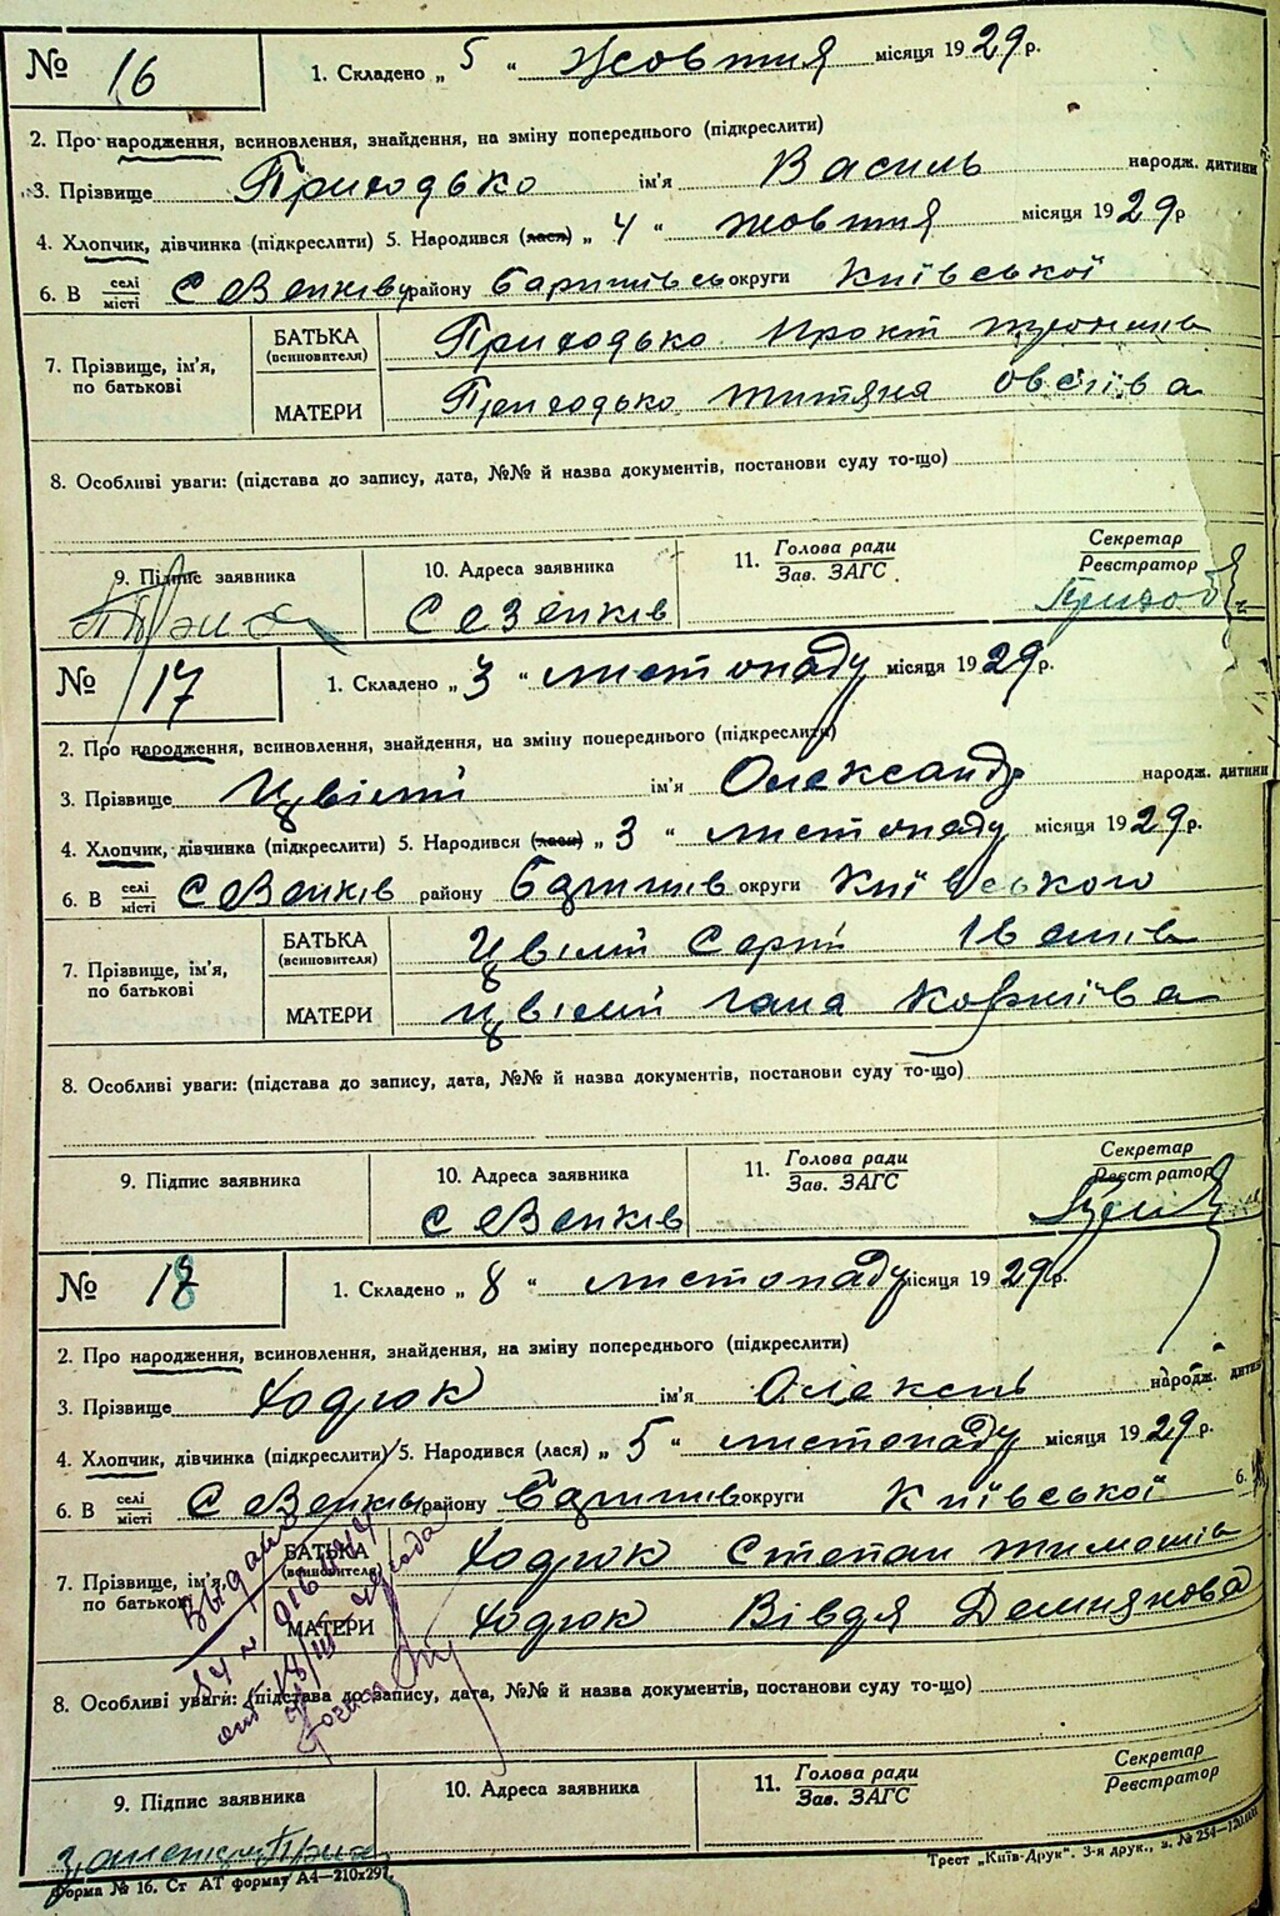 № 16
1. Складено „ 5 “ Жовтня місяця 1929 р.
2. Про народження, всиновлення, знайдення, на зміну попереднього (підкреслити)
3. Прізвище Приходько ім'я Василь народж. дитини
4. Хлопчик, дівчинка (підкреслити) 5. Народився (лася) „ 4 “ жовтня місяця 1929 р
6. В селі/місті С Сезенків району Баришівсь округи Київської
7. Прізвище, ім'я, по батькові
БАТЬКА (всиновителя) Приходько
МАТЕРИ Приходько Титяна Овсіїва
8. Особливі уваги: (підстава до запису, дата, №№ й назва документів, постанови суду то-що)
9. Підпис заявника
10. Адреса заявника Сезенків
11. Голова ради/Зав. ЗАГС
Секретар/Реєстратор
№ 17
1. Складено „ 3 “ листопаду місяця 1929 р.
2. Про народження, всиновлення, знайдення, на зміну попереднього (підкреслити)
3. Прізвище Цвілий ім'я Олександр народж. дитини
4. Хлопчик, дівчинка (підкреслити) 5. Народився (лася) „ 3 “ листопаду місяця 1929 р.
6. В селі/місті Сезенків району Баришів округи Київського
7. Прізвище, ім'я, по батькові
БАТЬКА (всиновителя) Цвілий Сергій Іванів
МАТЕРИ Цвілий Гана Корніїва
8. Особливі уваги: (підстава до запису, дата, №№ й назва документів, постанови суду то-що)
9. Підпис заявника
10. Адреса заявника Сезенків
11. Голова ради/Зав. ЗАГС
Секретар/Реєстратор
№ 18
1. Складено „ 8 “ листопаду місяця 1929 р.
2. Про народження, всиновлення, знайдення, на зміну попереднього (підкреслити)
3. Прізвище Ходюк ім'я Олексій народж. дитини
4. Хлопчик, дівчинка (підкреслити) 5. Народився (лася) „ 5 “ листопаду місяця 1929 р.
6. В селі/місті Сезенків району Баришів округи Київської
7. Прізвище, ім'я, по батькові
БАТЬКА (всиновителя) Ходюк Степан Тимошів
МАТЕРИ Ходюк Вівдя Демнянова
8. Особливі уваги: (підстава до запису, дата, №№ й назва документів, постанови суду то-що)
9. Підпис заявника
10. Адреса заявника
11. Голова ради/Зав. ЗАГС
Секретар/Реєстратор
Форма № 16. Ст АТ формат А4—210х297.
Трест „Київ-Друк“. 3-я друк., з. № 254—